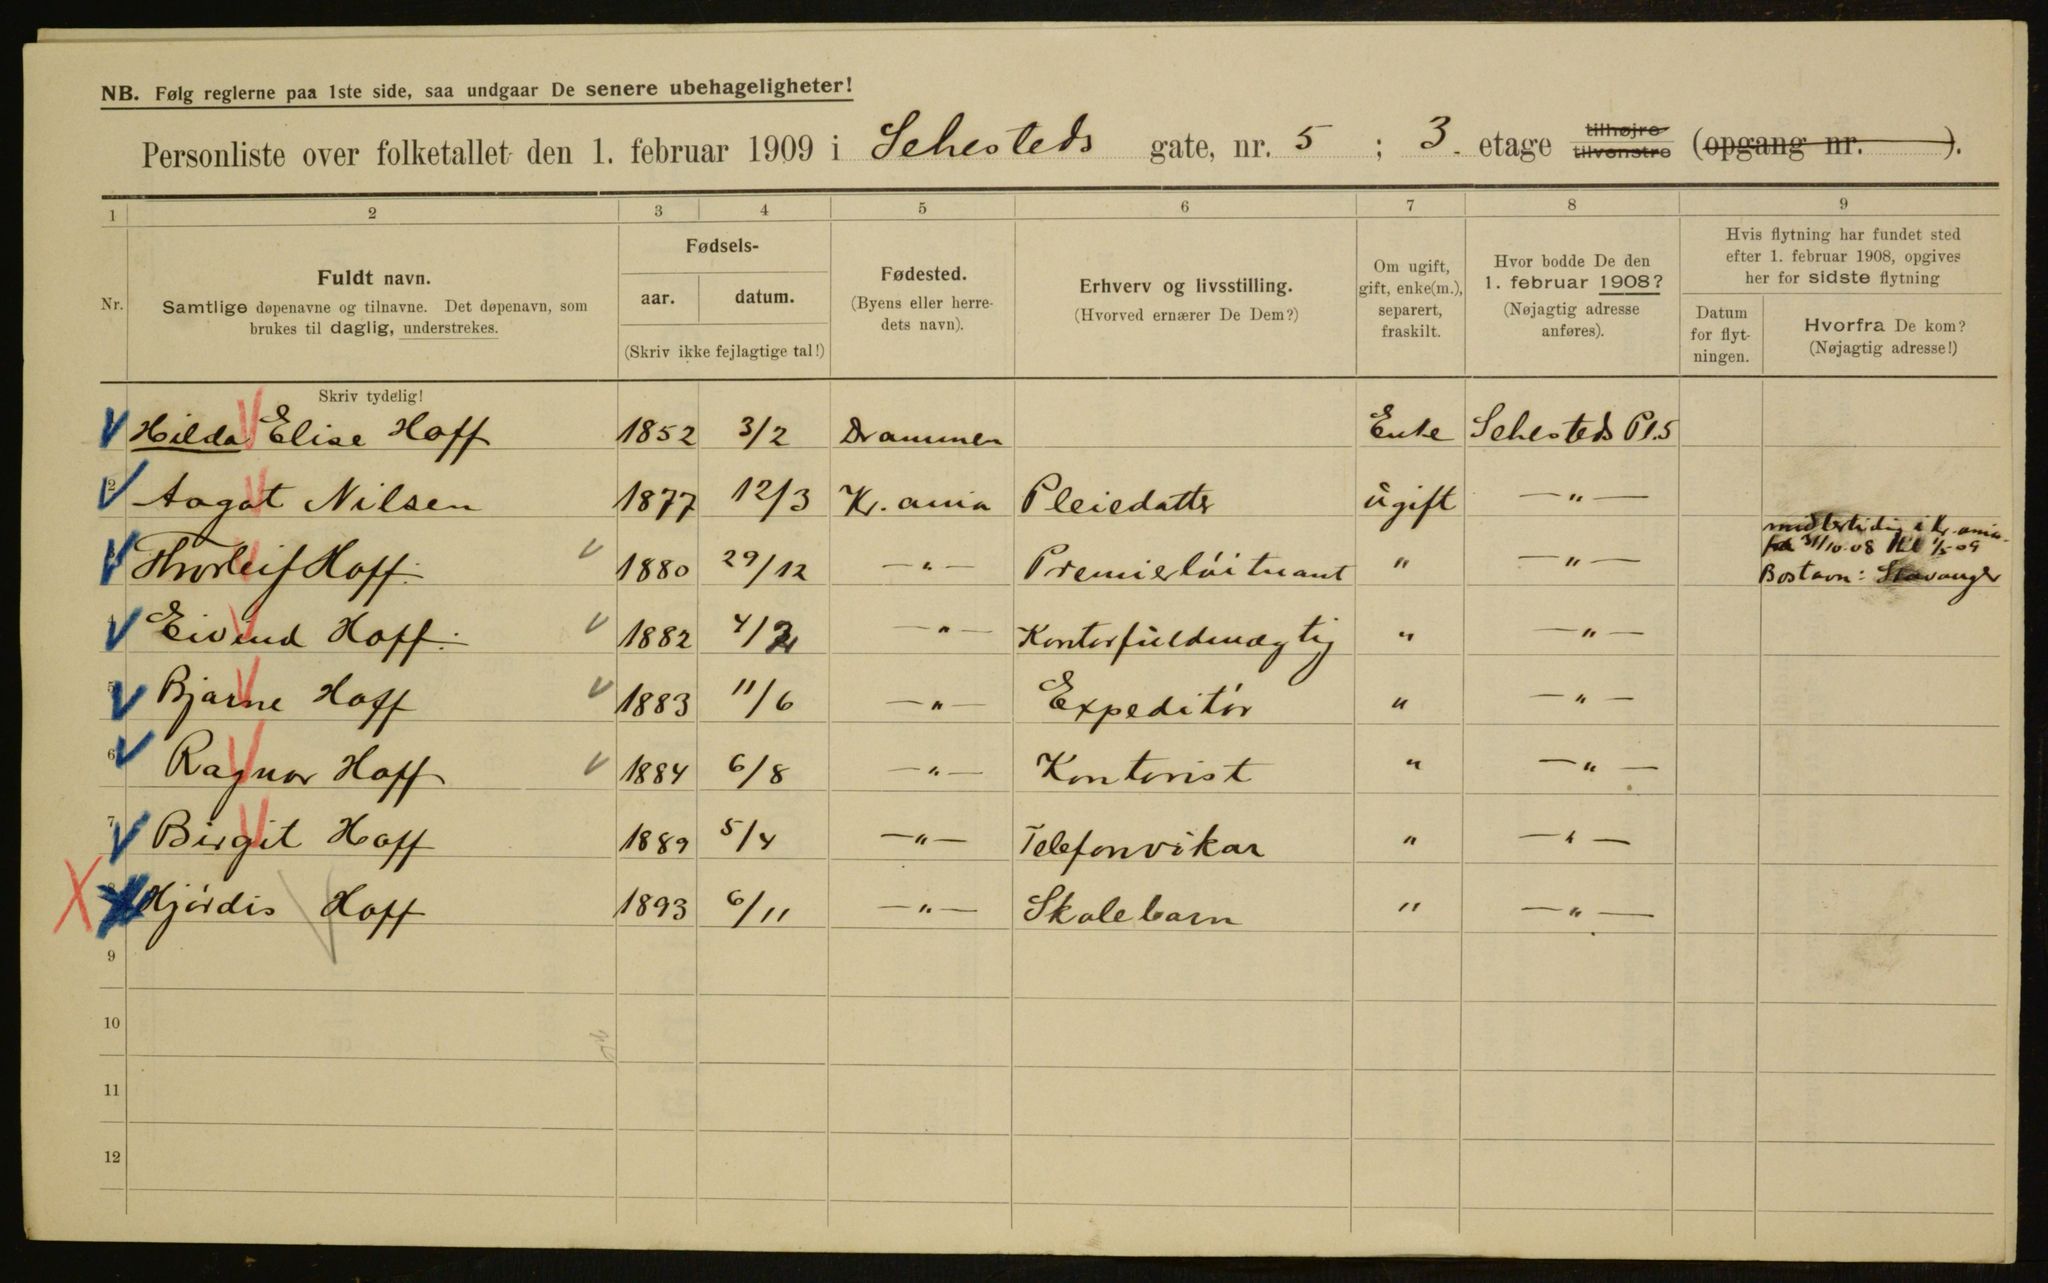 NB. Følg reglerne paa 1ste side, saa undgaar De senere ubehageligheter!
Personliste over folketallet den 1. februar 1909 i Sehesteds gate, nr. 5 ; 3. etage tilhøjre tilvenstre (opgang nr. ).
1 2 3 4 5 6 7 8 9
Nr.
Fuldt navn.
Samtlige døpenavne og tilnavne. Det døpenavn, som
brukes til daglig, understrekes.
Fødsels-
aar. datum.
(Skriv ikke fejlagtige tal!)
Fødested.
(Byens eller herre-
dets navn).
Erhverv og livsstilling.
(Hvorved ernærer De Dem?)
Om ugift,
gift, enke(m.),
separert,
fraskilt.
Hvor bodde De den
1. februar 1908?
(Nøjagtig adresse
anføres).
Hvis flytning har fundet sted
efter 1. februar 1908, opgives
her for sidste flytning
Datum
for flyt-
ningen.
Hvorfra De kom?
(Nøjagtig adresse!)
Skriv tydelig!
Hilda Elise Hoff 1852 3/2 Drammen Enke Sehesteds Pl. 5
2 Aagot Nilsen 1877 12/3 Kr.ania Pleiedatter ugift —"—
Thorleif Hoff. 1880 29/12 —"— Premierløitnant " —"— midlertidig i Kr.ania
31/10-08 til 1/5-09
Bostavn: Stavanger
Eivind Hoff. 1882 4/2 —"— Kontorfuldmægtig " —"—
5 Bjarne Hoff 1883 11/6 —"— Expeditør " —"—
6 Ragnar Hoff 1884 6/8 —"— Kontorist " —"—
7 Birgit Hoff 1889 5/4 —"— Telefonvikar " —"—
8 Hjørdis Hoff 1893 6/11 —"— Skolebarn " —"—
9
10
11
12